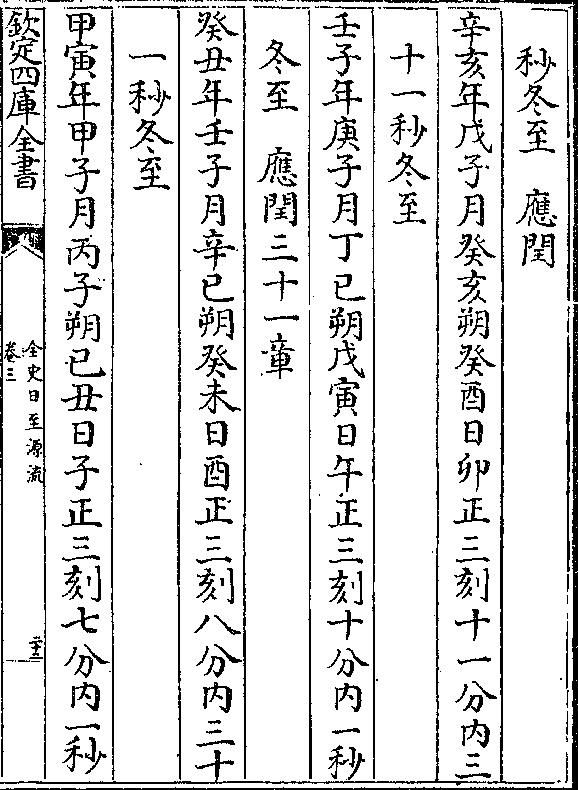 秒冬至　應閏
辛亥年戊子月癸亥朔癸酉日卯正三刻十一分内三
十一秒冬至
壬子年庚子月丁巳朔戊寅日午正三刻十分内一秒
冬至　應閏三十一章
癸丑年壬子月辛巳朔癸未日酉正三刻八分内三十
一秒冬至
甲寅年甲子月丙子朔已丑日子正三刻七分内一秒
欽定四庫全書
全史日至源流
卷三